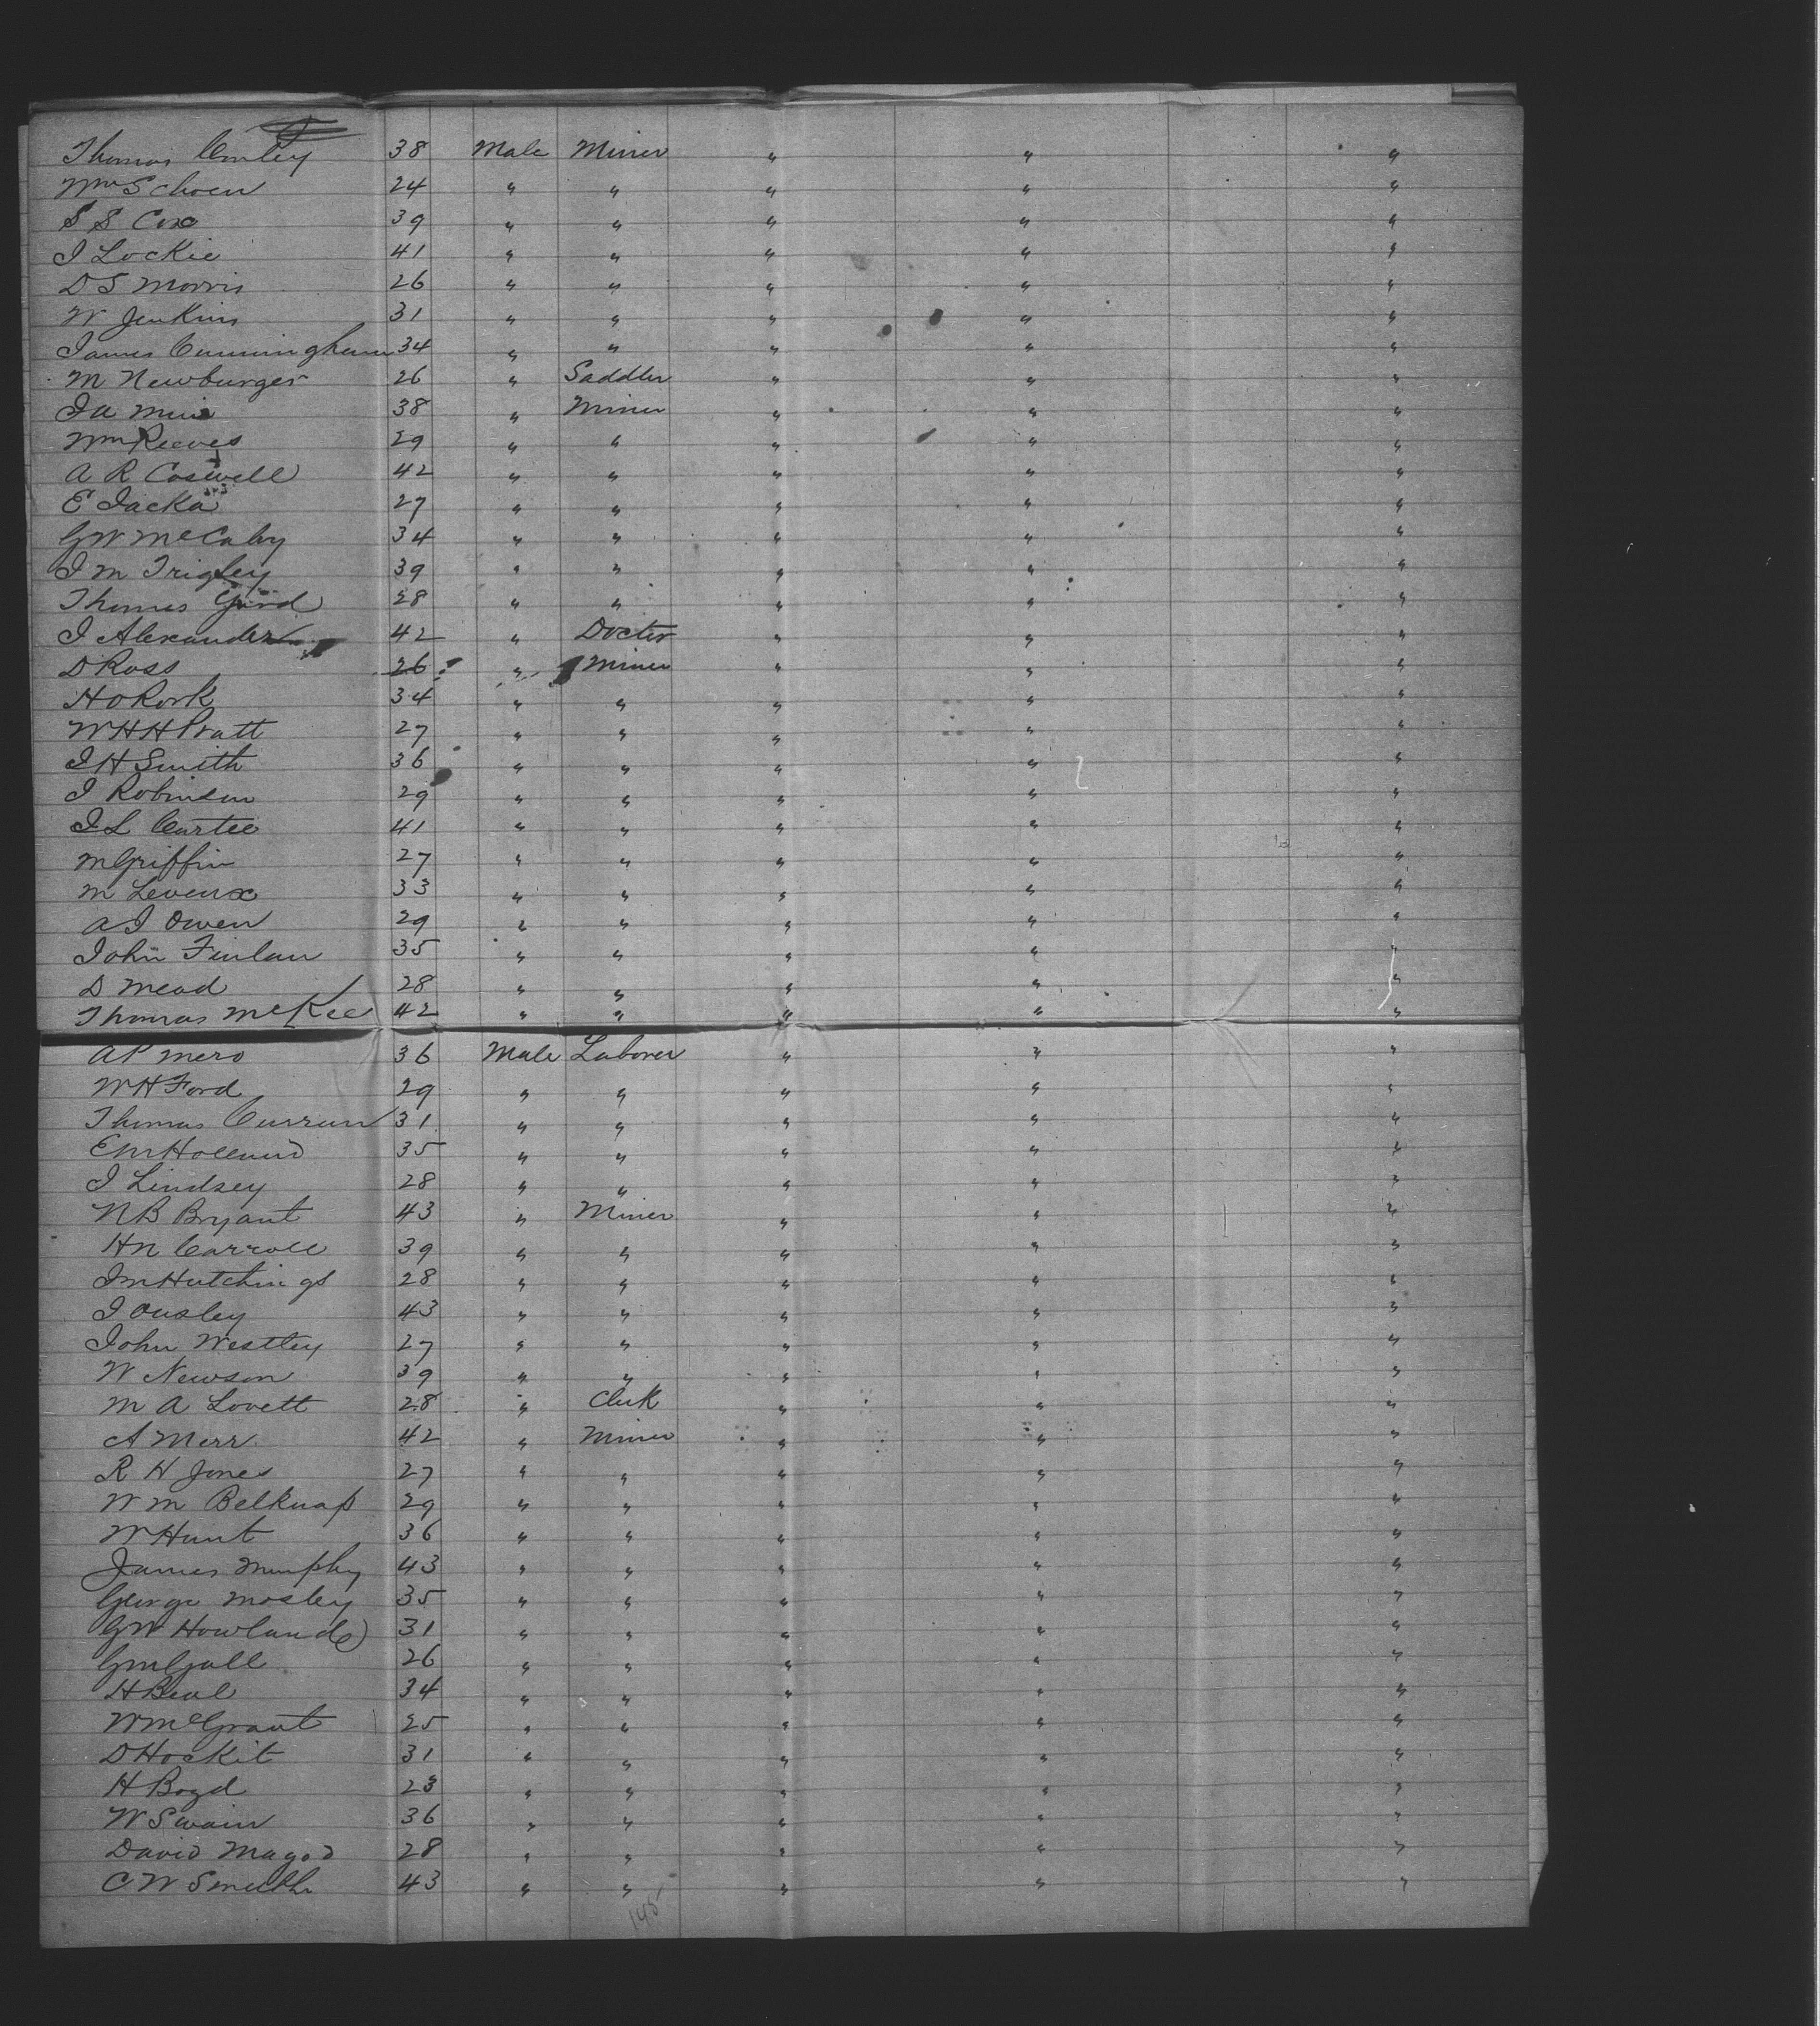 Thomas Conley 38 Male Miner " " "
Wm Schoen 24 " " " " "
S S Cox 39 " " " " "
J Lockie 41 " " " " "
D S Morris 26 " " " " "
W Jenkins 31 " " " " "
James Cunningham 34 " " " " "
M Newburger 26 " Saddler " " "
J A Muir 38 " Miner " " "
Wm Reeves 29 " " " " "
A R Coswell 42 " " " " "
E Jacka 27 " " " " "
G W McCaby 34 " " " " "
J M Trigley 39 " " " " "
Thomas Gird 28 " " " " "
J Alexander 42 " Docter " " "
D Ross 26 " Miner " " "
H O Rork 34 " " " " "
W H H Pratt 27 " " " " "
J H Smith 36 " " " " "
J Robinson 29 " " " " "
J L Cartee 41 " " " " "
M Griffin 27 " " " " "
M Leveux 33 " " " " "
A J Owen 29 " " " " "
John Finlan 35 " " " " "
D Mead 28 " " " " "
Thomas McKee 42 " " " " "
A P Mero 36 Male Laborer " " "
W H Ford 29 " " " " "
Thomas Curran 31 " " " " "
E M Holland 35 " " " " "
J Lindsey 28 " " " " "
N B Bryant 43 " Miner " " "
H N Carroll 39 " " " " "
J M Hutchings 28 " " " " "
J Ousley 43 " " " " "
John Westley 27 " " " " "
W Newson 39 " " " " "
M A Lovett 28 " Clerk " " "
A Merr 42 " Miner " " "
R H Jones 27 " " " " "
W M Belknap 29 " " " " "
W Hunt 36 " " " " "
James Murphy 43 " " " " "
George Mosley 35 " " " " "
G W Howland 31 " " " " "
G M Gall 26 " " " " "
H Beal 34 " " " " "
W McGrant 25 " " " " "
D Hockit 31 " " " " "
H Boyd 23 " " " " "
W Swain 36 " " " " "
David Magod 28 " " " " "
C W Smith 43 " " " " "
145